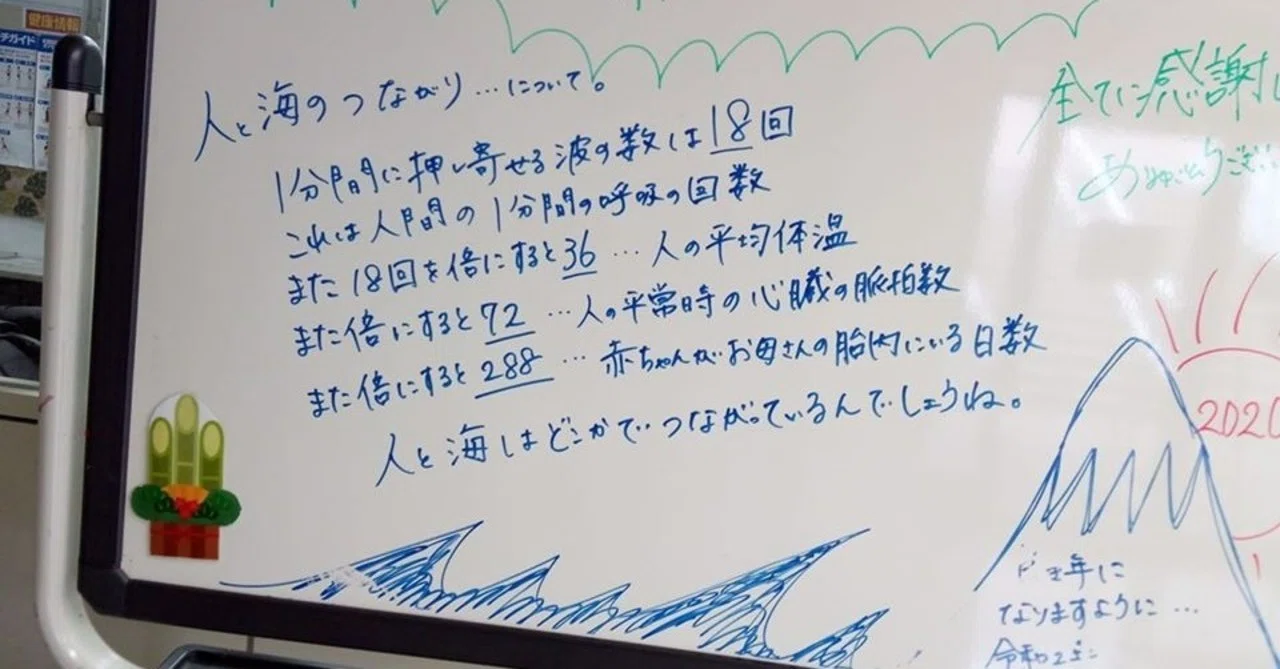 健康情報
チガイド
人と海のつながり…について。
1分間に押し寄せる波の数は18回
これは人間の1分間の呼吸の回数
また18回を倍にすると36…人の平均体温
また倍にすると72…人の平常時の心臓の脈拍数
また倍にすると288…赤ちゃんがお母さんの胎内にいる日数
人と海はどこかでつながっているんでしょうね。
全てに感謝し
ありがとうござい
2020
年に
なりますように…
令和2年